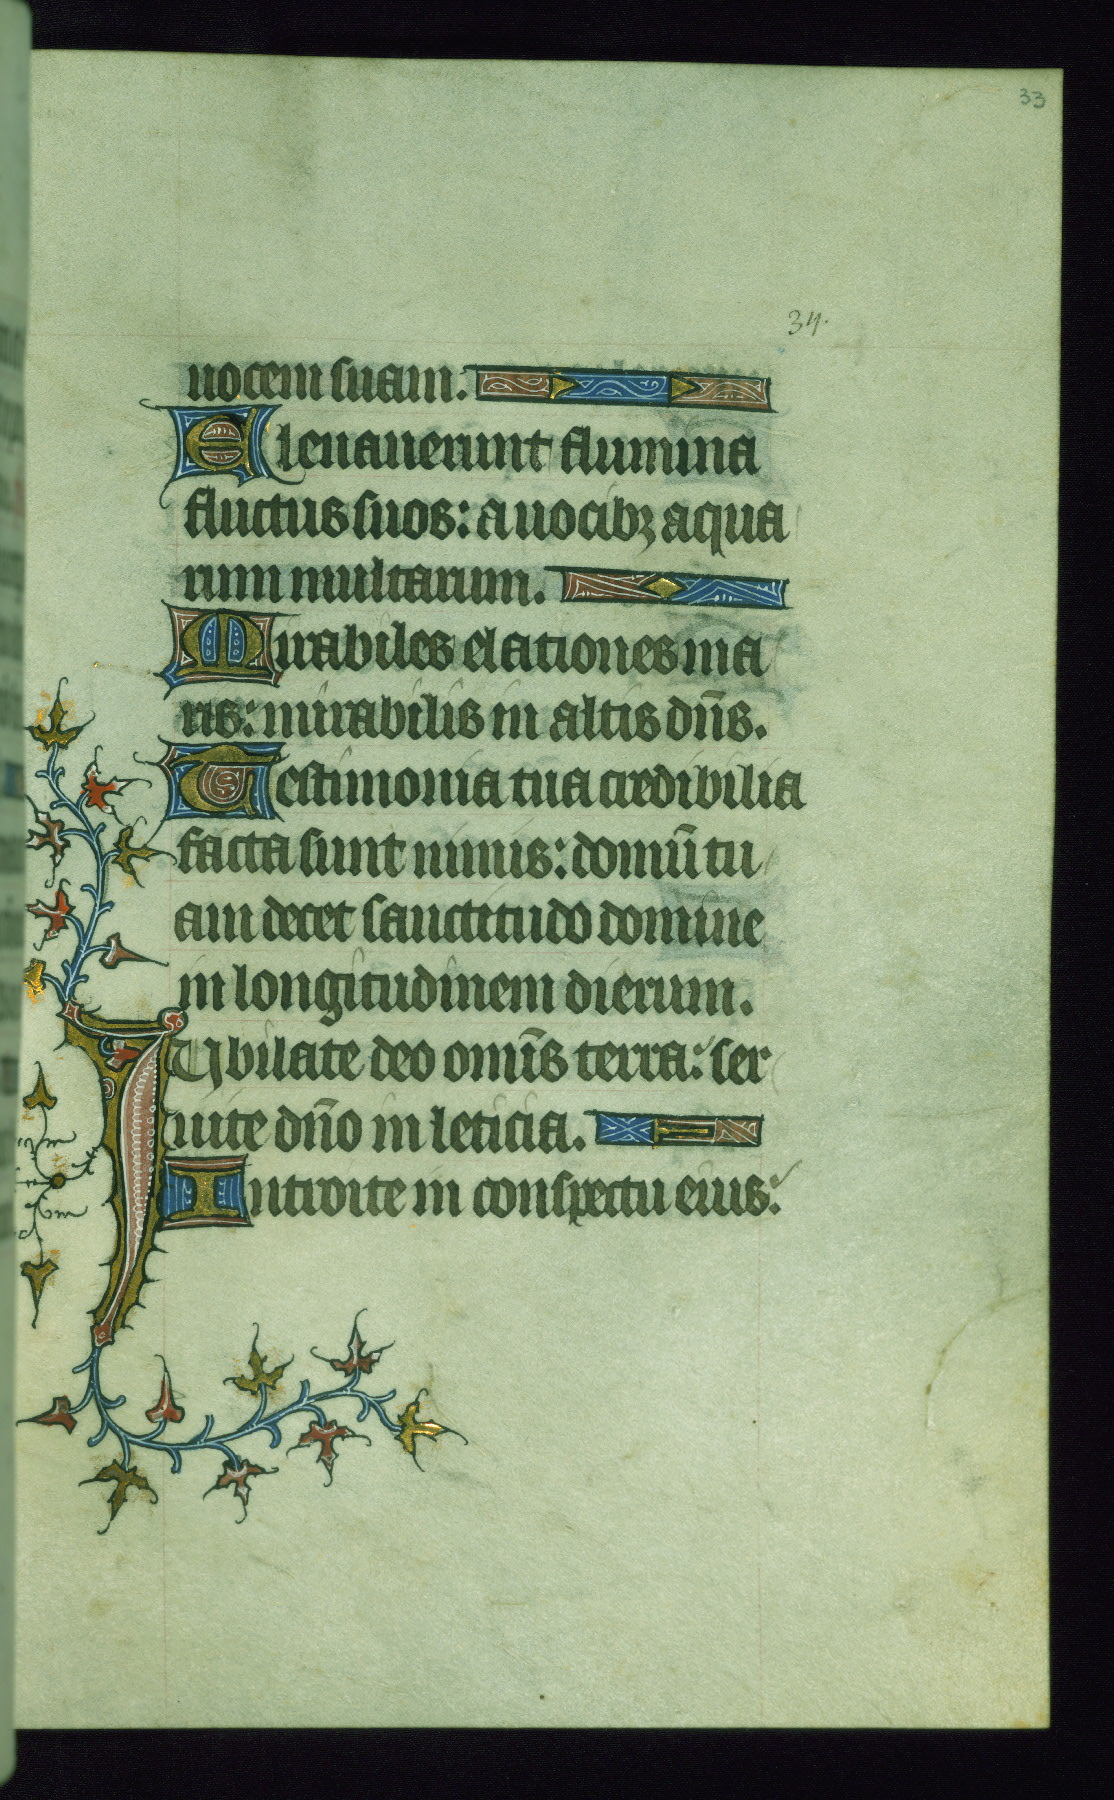 33
34.
uocem suam.
Eleuauerunt flumina
fluctus suos: a uocibꝫ aqua
rum multarum.
Mirabiles elationes ma
ris: mirabilis in altis dn̄s.
Testimonia tua credibilia
facta sunt nimis: domū tu
am decet sanctitudo domine
in longitudinem dierum.
Iubilate deo omīs terra: ser
uite dn̄o in leticia.
Introite in conspectu eius: